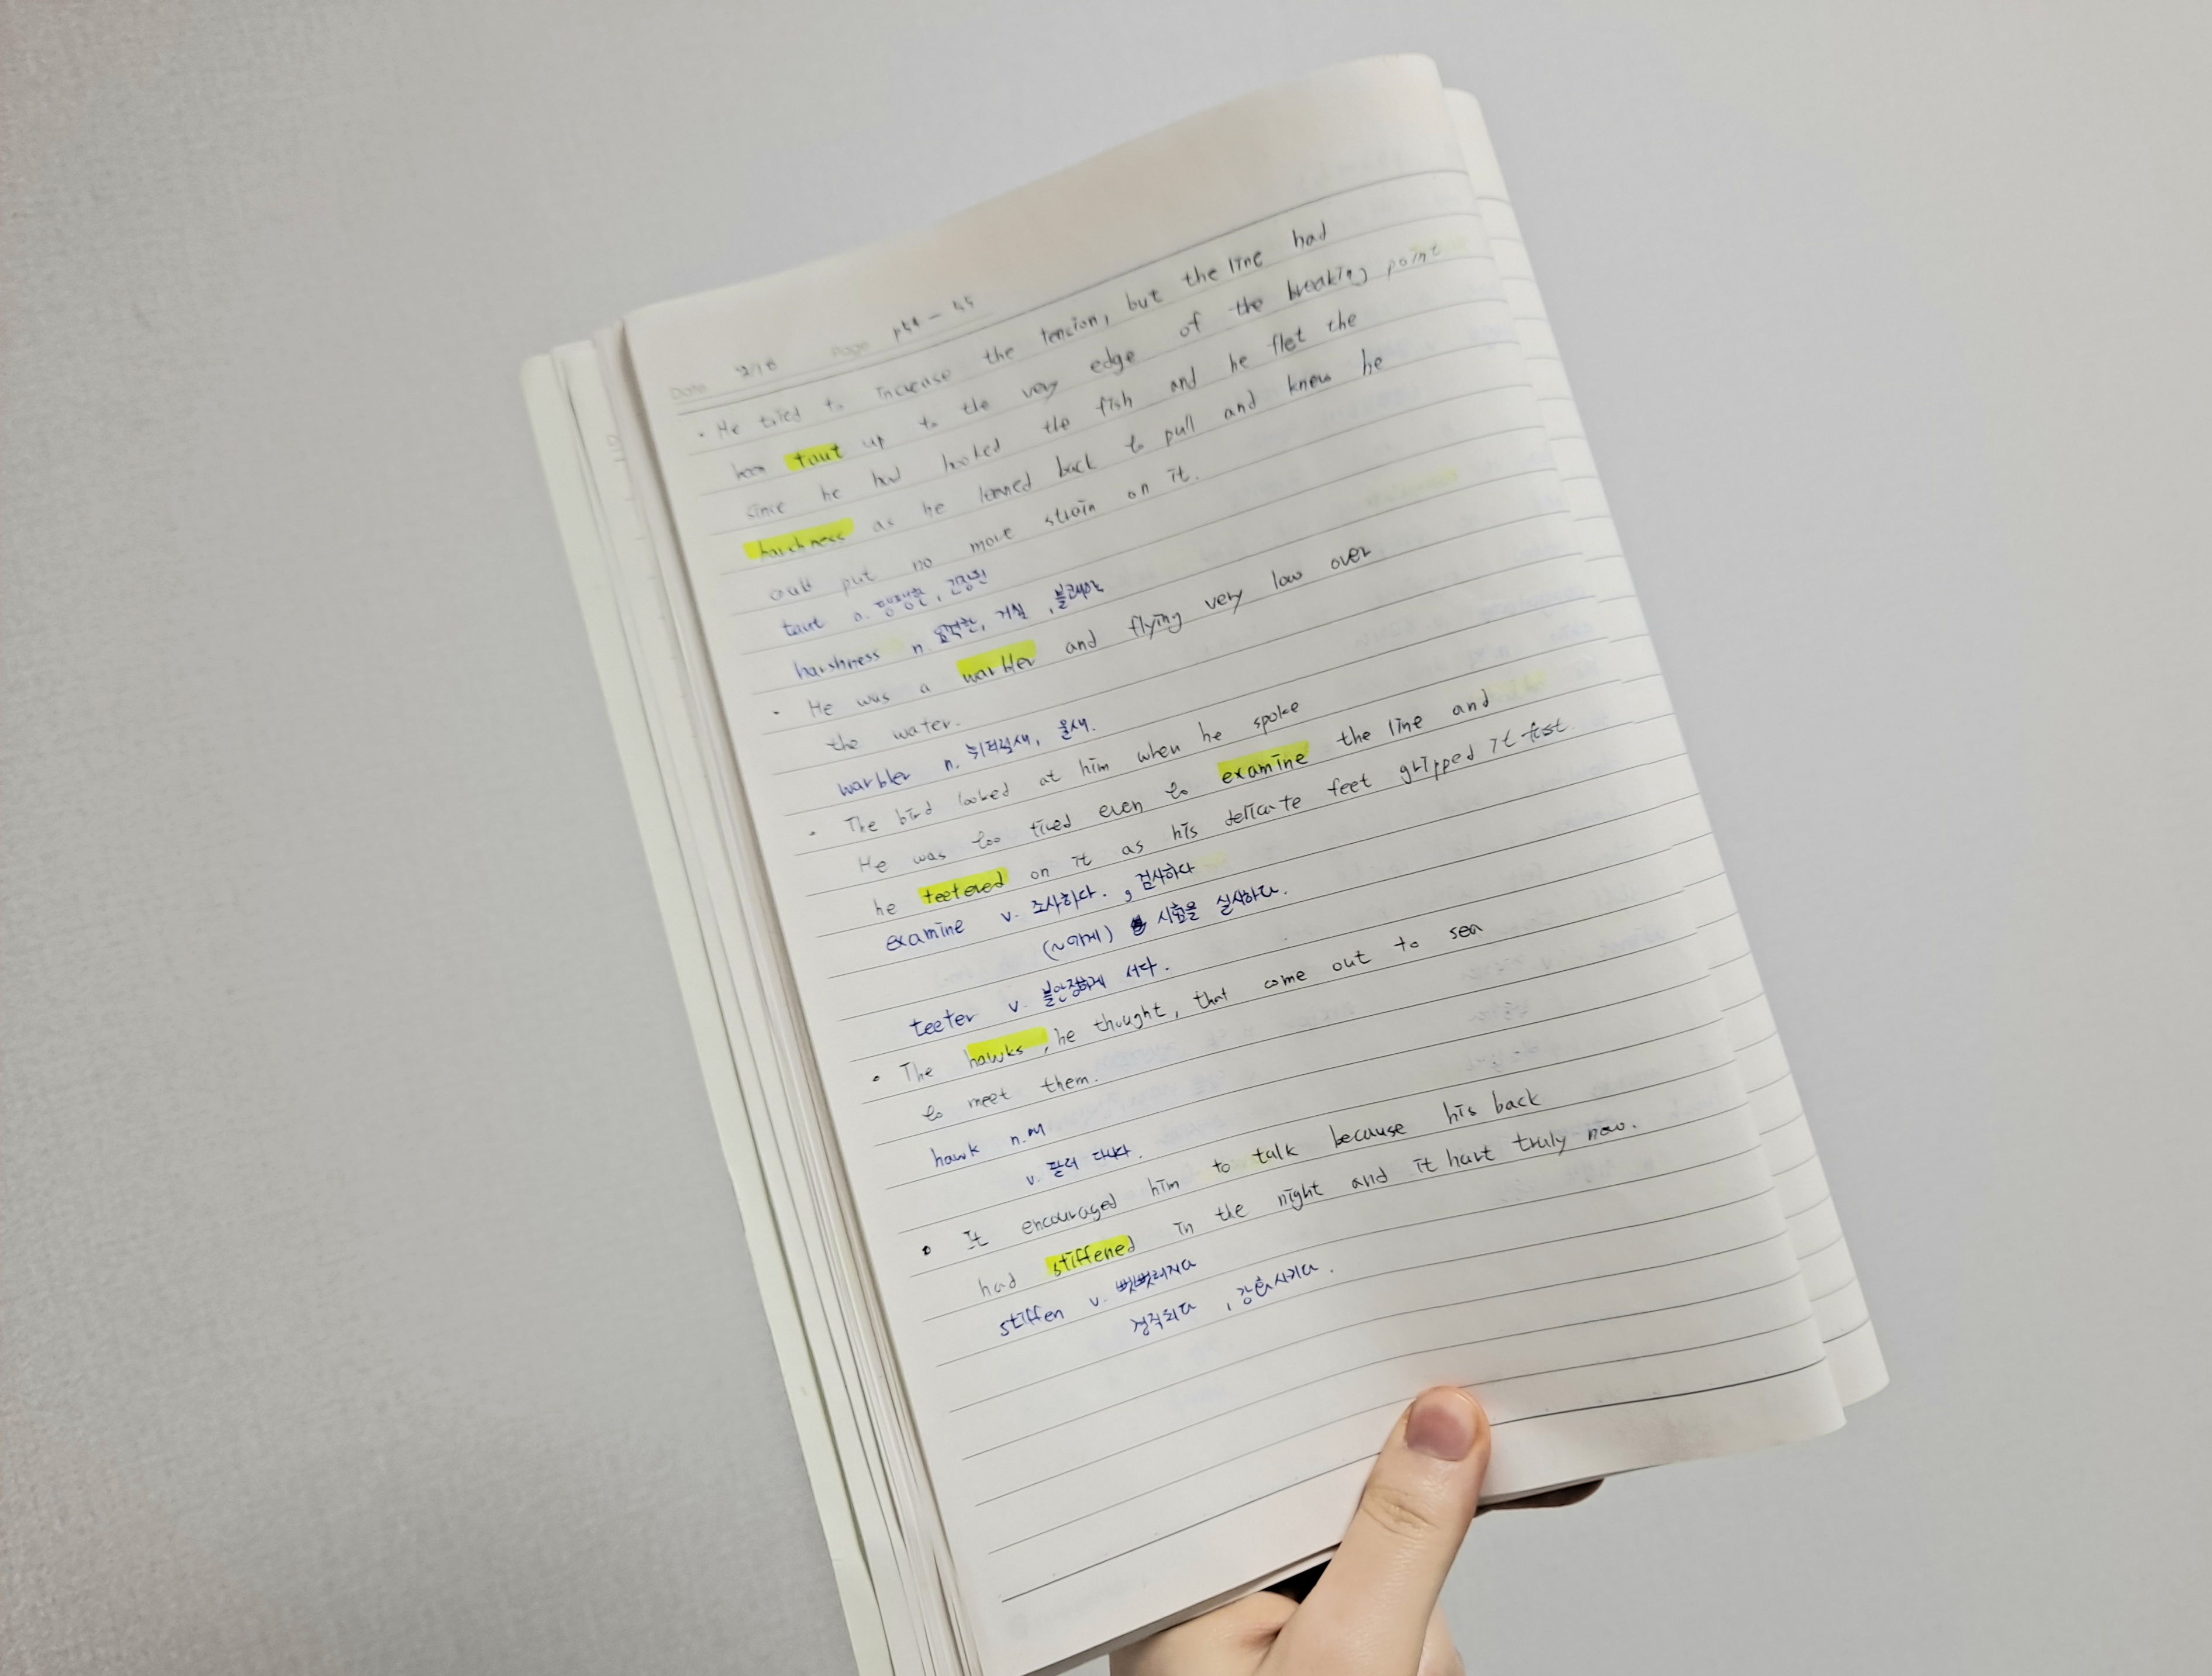 Date 2/16 Page p54 - 55
· He tried to increase the tencion, but the line had
been taut up to the very edge of the breaking point
since he had hooked the fish and he flet the
harshness as he leaned back to pull and knew he
could put no more strain on it.
taut a. 팽팽한, 긴장된
harshness n. 엄격한, 거칠, 불쾌한
· He was a warbler and flying very low over
the water.
warbler n. 휘파람새, 울새.
· The bird looked at him when he spoke
He was too tired even to examine the line and
he teetered on it as his delicate feet gripped it fast.
examine v. 조사하다. , 검사하다
(~에게) 시험을 실시하다.
teeter v. 불안정하게 서다.
· The hawks, he thought, that come out to sea
to meet them.
hawk n. 매
v. 팔러 다니다.
· It encouraged him to talk because his back
had stiffened in the night and it hurt truly now.
stiffen v. 뻣뻣해지다
경직되다 , 강화시키다.